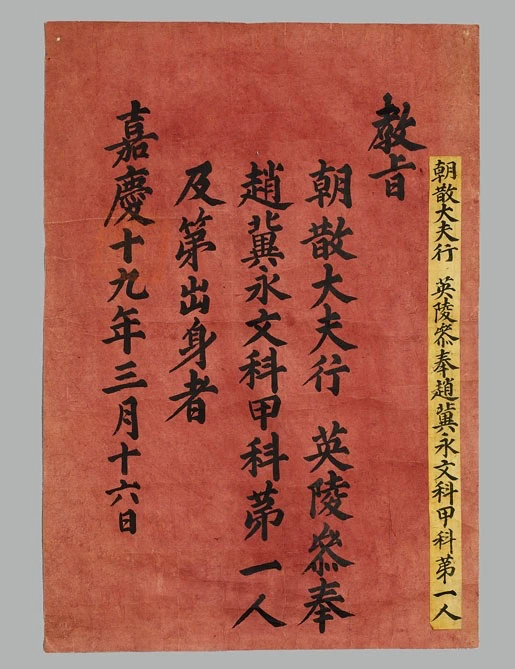 朝散大夫行 英陵叅奉趙冀永文科甲科第一人
教旨
朝散大夫行 英陵叅奉
趙冀永文科甲科第一人
及第出身者
嘉慶十九年三月十六日